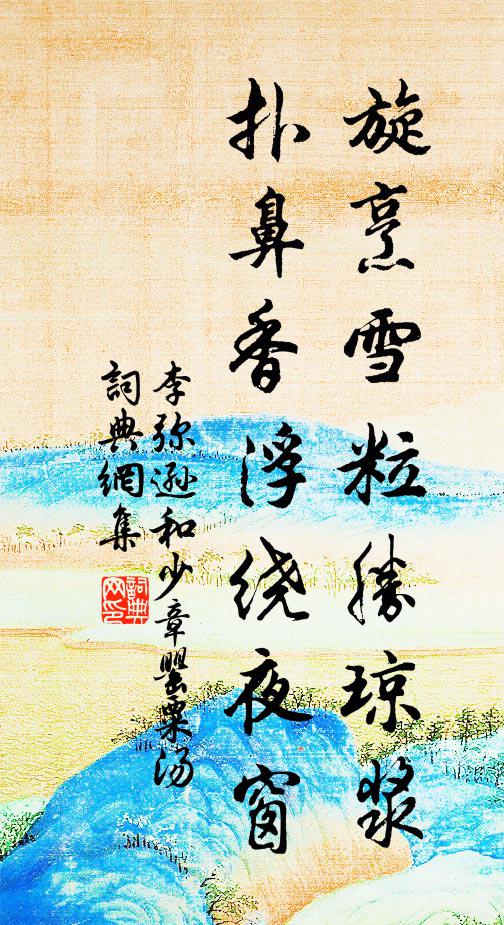 旋烹雪粒勝琼漿
扑鼻香浮绕夜窗
李弥逊和少章罌粟汤
詞典網集